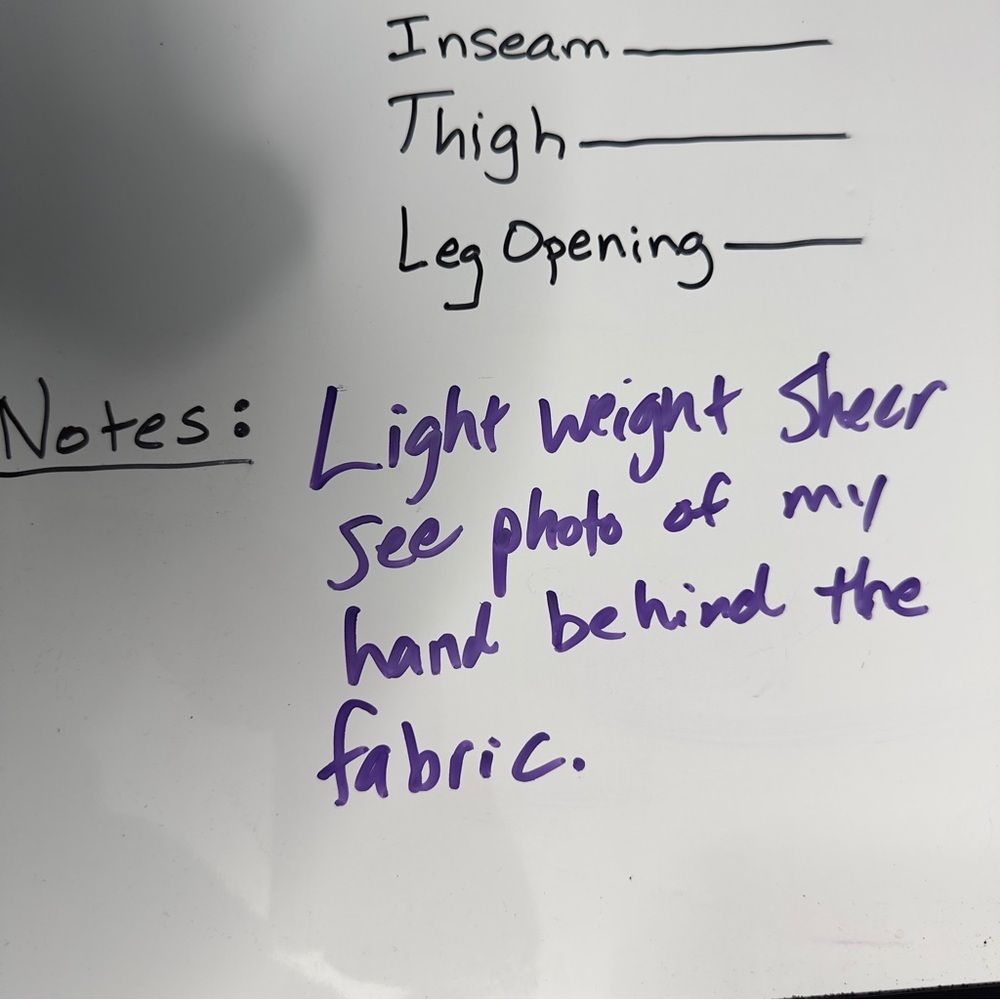 Inseam
Thigh
Leg Opening
Notes: Light weight Sheer
see photo of my
hand behind the
fabric.